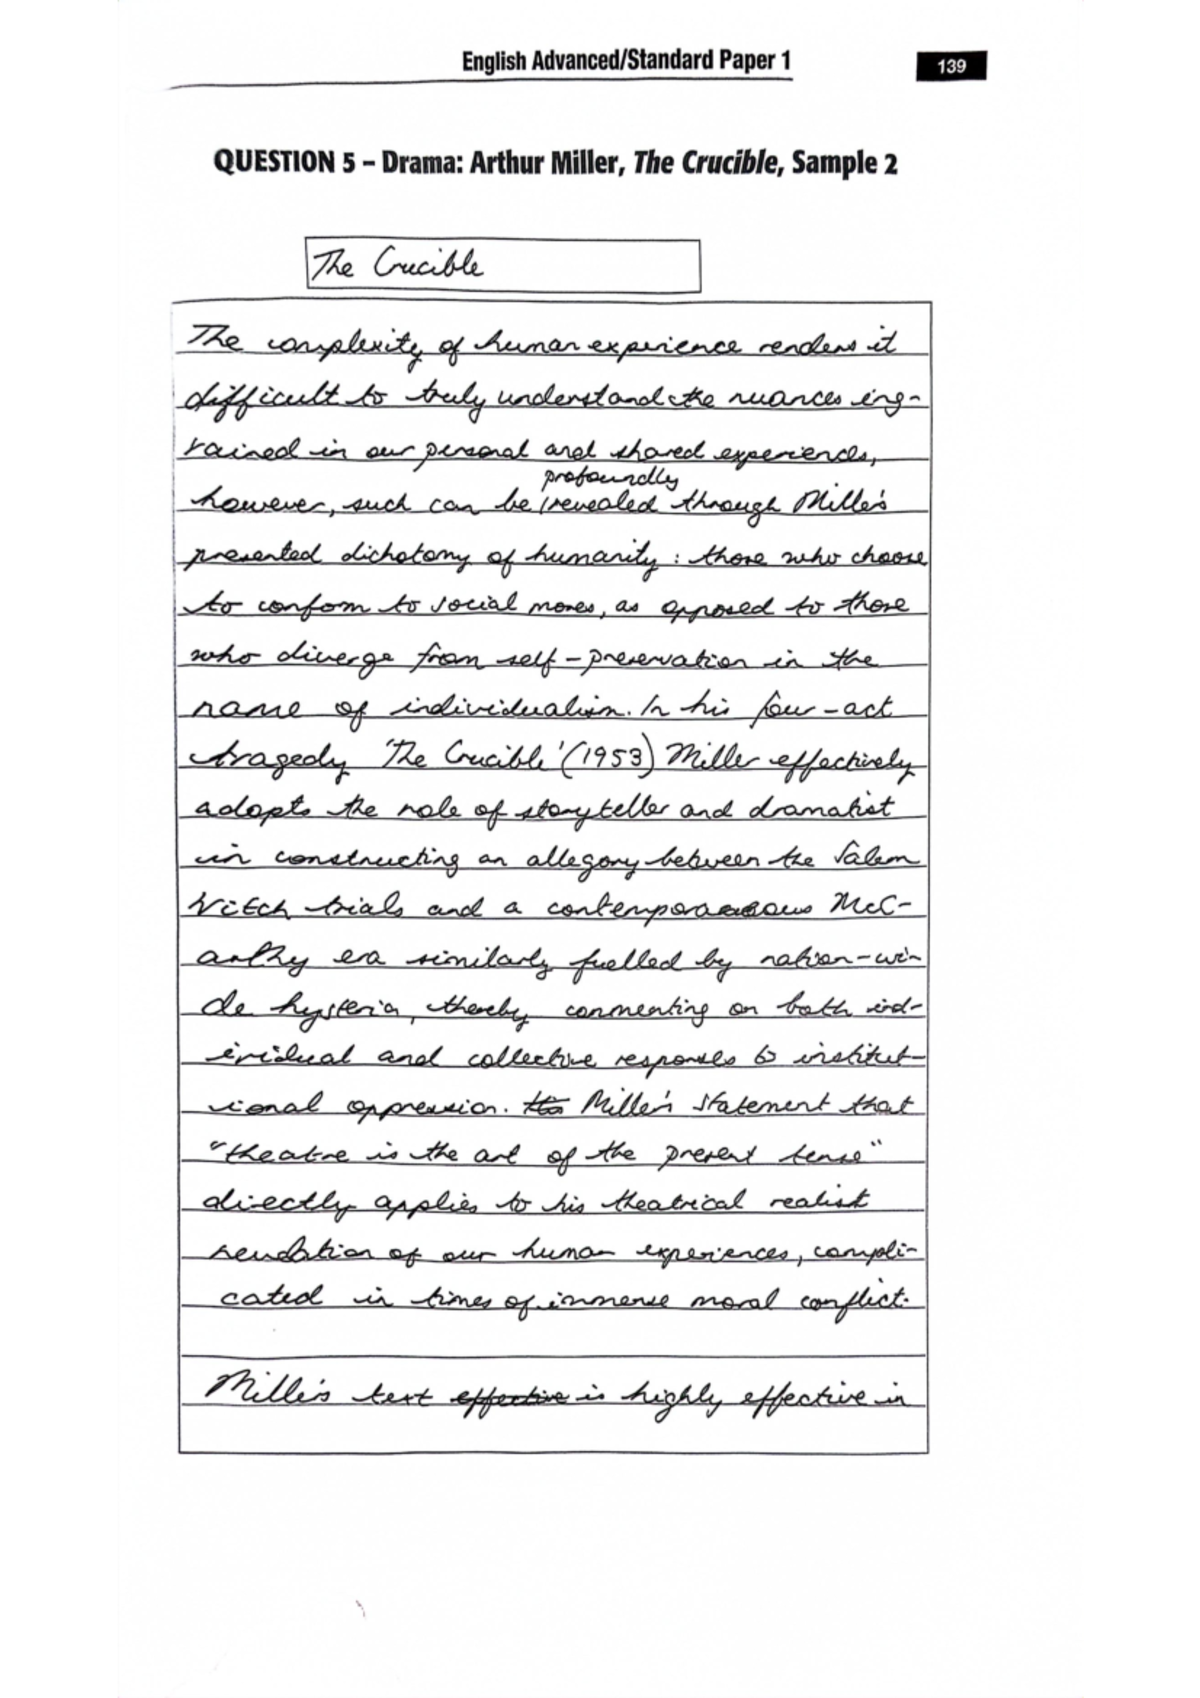 English Advanced/Standard Paper 1
139
QUESTION 5 – Drama: Arthur Miller, The Crucible, Sample 2
The Crucible
The complexity of human experience renders it
difficult to truly understand the nuances ing-
rained in our personal and shared experiences,
profoundly
however, such can be revealed through Miller's
presented dichotomy of humanity: those who choose
to conform to social mores, as opposed to those
who diverge from self-preservation in the
name of individualism. In his four-act
tragedy 'The Crucible' (1953) Miller effectively
adopts the role of storyteller and dramatist
in constructing an allegory between the Salem
Witch trials and a contemporaneous McC-
arthy era similarly fuelled by nation-wi-
de hysteria, thereby commenting on both ind-
ividual and collective responses to institut-
ional oppression. Miller's statement that
"theatre is the art of the present tense"
directly applies to his theatrical realist
rendition of our human experiences, compli-
cated in times of immense moral conflict.
Miller's text effective is highly effective in